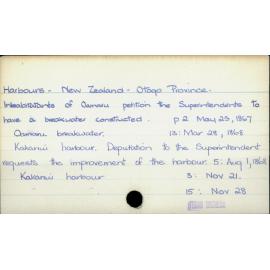 Harbours - New Zealand - Otago Province.
Inhabitants of Oamaru petition the Superintendents to
have a breakwater constructed. p 2 May 23, 1867
Oamaru breakwater. 13: Mar 28, 1868
Kakanui harbour. Deputation to the Superintendent
requests the improvement of the harbour. 5: Aug 1, 1868
Kakanui harbour 3: Nov 21.
15: Nov 28